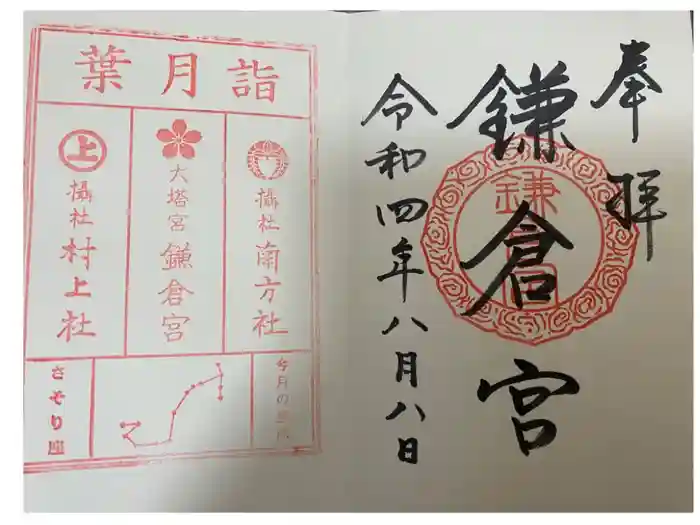 奉拝
鎌倉宮
令和四年八月八日
鎌
葉月詣
摂社 南方社
大塔宮 鎌倉宮
上
攝社 村上社
今月の星座
さそり座